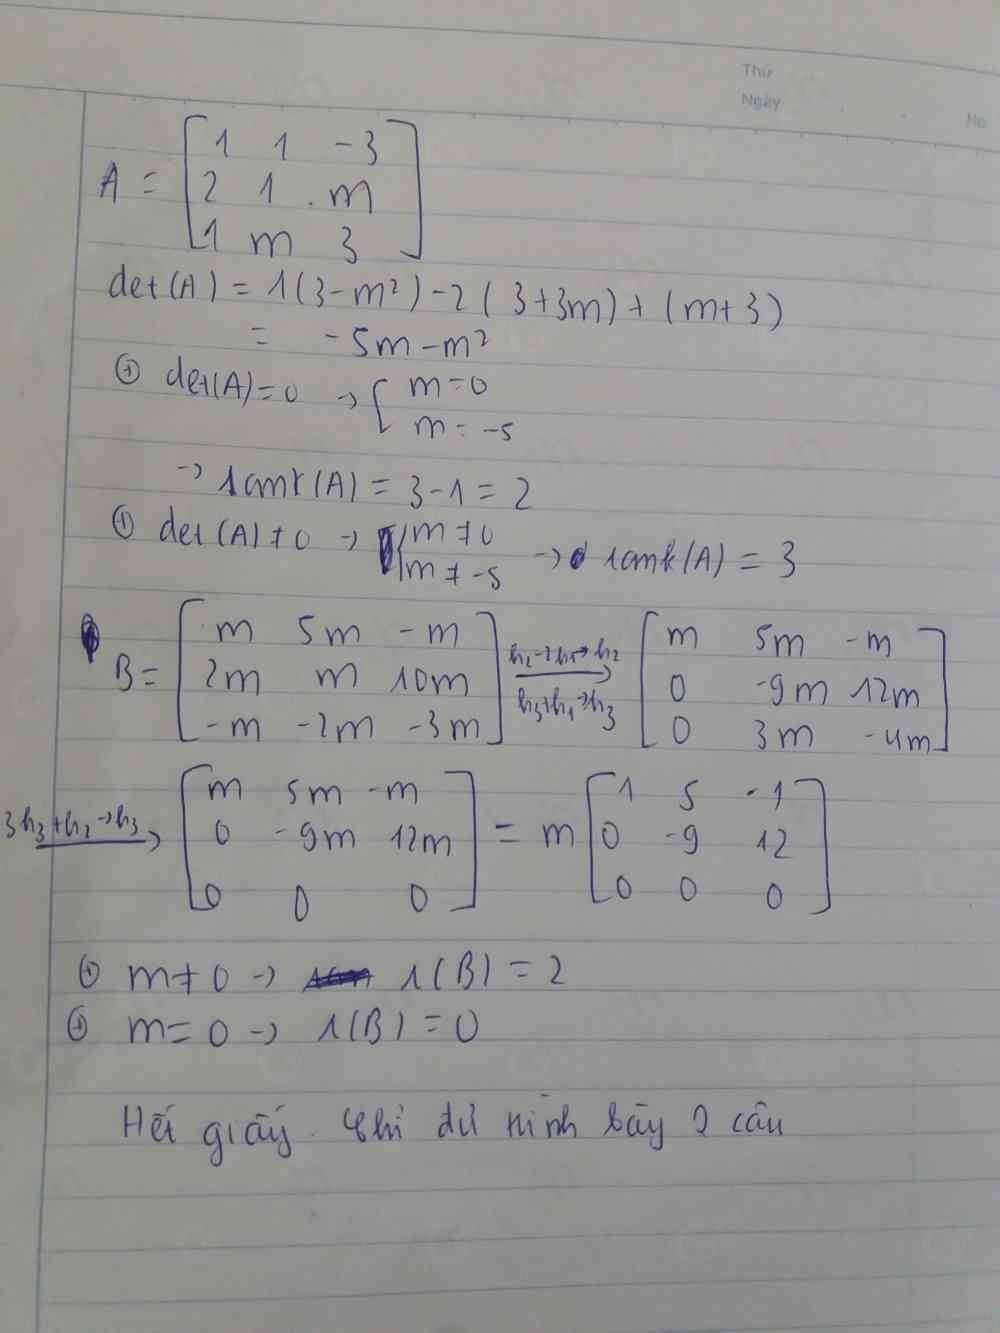 Thứ
Ngày
No
A = [1 1 -3
2 1 . m
1 m 3]
det(A) = 1(3-m²)-2(3+3m)+(m+3)
= -5m-m²
+ det(A)=0 → [m=0
m=-5
→ rank(A) = 3-1 = 2
+ det(A)≠0 → {m≠0
m≠-5 → rank(A) = 3
B = [m 5m -m
2m m 10m
-m -2m -3m] h₂-2h₁→h₂
h₃+h₁→h₃ → [m 5m -m
0 -9m 12m
0 3m -4m]
3h₃+h₂→h₃ → [m 5m -m
0 -9m 12m
0 0 0] = m [1 5 -1
0 -9 12
0 0 0]
+ m≠0 → r(B) = 2
+ m=0 → r(B) = 0
Hết giấy. Chỉ đủ trình bày 2 câu